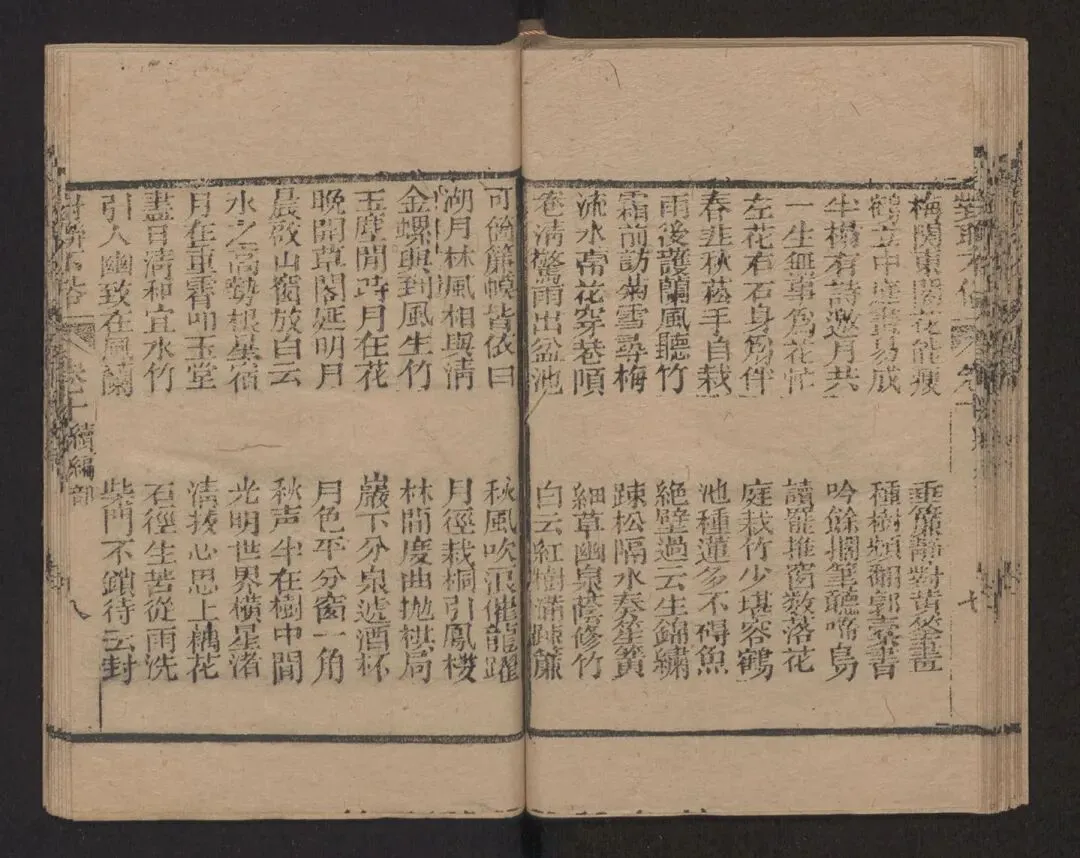 對聯不俗
七
梅関東閣花能瘦
垂簾靜對黃荃畫
鶴立中庭書易成
種樹頻翻郭橐書
半榻有詩邀月共
吟餘擱筆聽啼鳥
一生無事爲花忙
讀罷推窗数落花
左花右石身爲伴
庭栽竹少堪容鶴
春韭秋菘手自栽
池種蓮多不碍魚
雨後護蘭風聽竹
絶壁過云生錦繡
霜前訪菊雪尋梅
踈松隔水奏笙簧
流水帶花穿巷
細草幽泉蔭修竹
清驚雨出盆池
白云紅樹滿踈簾
可簾幌皆依日
秋風吹浪催龍躍
湖月林風相與清
月徑栽桐引鳳棲
金螺興到風生竹
林間度曲抛棋局
玉麈閒時月在花
巖下分泉遞酒杯
晚開草閣延明月
月色平分窗一角
晨啟山窗放白云
秋声半在樹中間
水之高勢根星宿
光明世界橫星渚
月在重霄叩玉堂
清拔心思上藕花
盡日清和宜水竹
石徑生苔從雨洗
引人幽致在風蘭
柴門不鎖待云封
對聯不俗
續編部
八